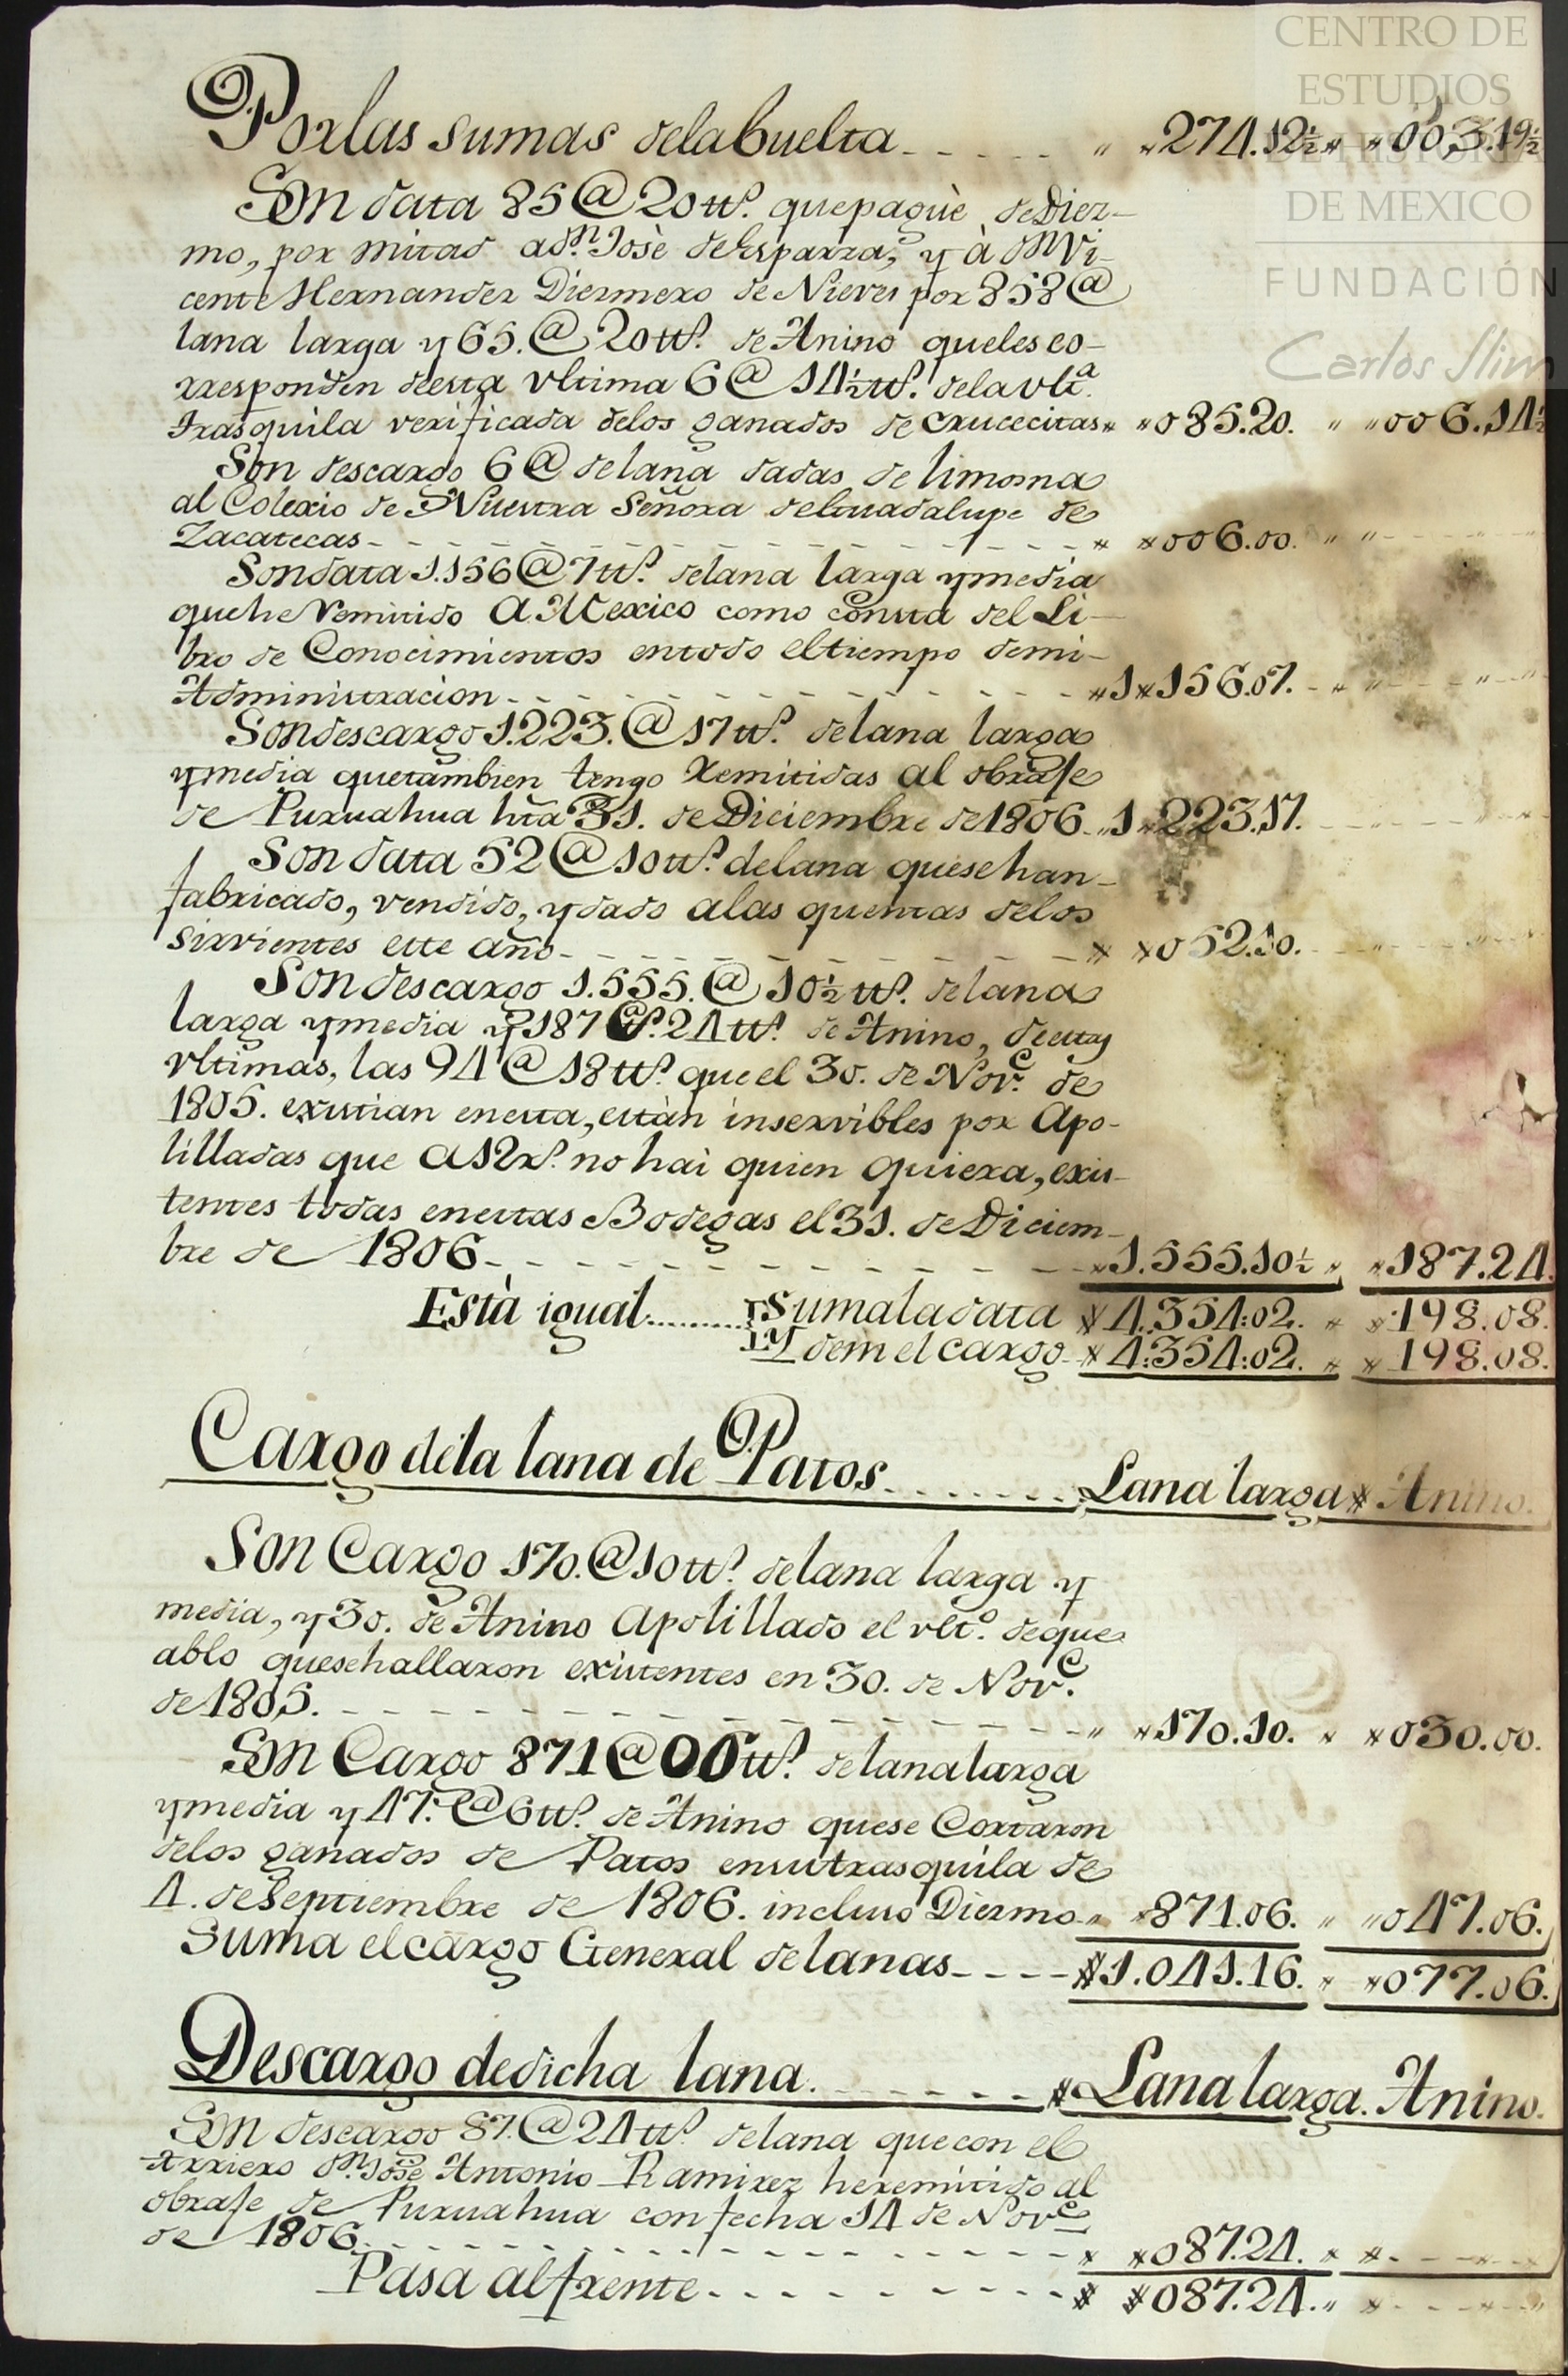 CENTRO DE
ESTUDIOS
DE HISTORIA
DE MEXICO
FUNDACIÓN
Carlos Slim
Por las sumas dela buelta - - - - - " " 274.12½ " " 003.19½
Son data 85 @ 20 tt.s que paguè de Diez-
mo, por mitad a d.n Josè de Esparza, y à d.n Vi-
cente Hernandez Diezmero de Nieves por 858 @
lana larga y 65. @ 20 tt.s de Anino que les co-
rresponden de esta vltima 6 @ 14½ tt.s dela vlt.a
trasquila verificada delos ganados de Crucecitas " " 085.20. " " 006.14½
Son descargo 6 @ de lana dadas de limosna
al Colexio de Nuestra Señora de Guadalupe de
Zacatecas - - - - - " " 006.00. " " - - -
Son data 1.156 @ 7 tt.s de lana larga y media
que he remitido a Mexico como consta del Li-
bro de Conocimientos en todo el tiempo de mi
Administracion - - - - - " 1 " 156.07. - " " - - -
Son descargo 1.223. @ 17 tt.s de lana larga
y media que tambien tengo remitidas al obraje
de Puruahua hta 31. de Diciembre de 1806. " 1 " 223.17. - - -
Son data 52 @ 10 tt.s de lana que se han
fabricado, vendido, y dado a las quentas delos
sirvientes este año - - - - - " " 052.10. - - -
Son descargo 1.555. @ 10½ tt.s de lana
larga y media y 187 @.s 24 tt.s de Anino, de estas
vltimas, las 94 @ 18 tt.s que el 30. de Nov.e de
1805. existian en esta, estàn inservibles por Apo-
lilladas que a 12 r.s no hai quien quiera, exis-
tentes todas en estas Bodegas el 31. de Diciem-
bre de 1806 - - - - - " 1.555.10½ " " 187.24.
Està igual......... Suma la data " 4.354:02. " " 198.08.
Ydem el cargo " 4.354:02. " " 198.08.
Cargo de la lana de Patos - - - - - Lana larga " Anino.
Son Cargo 170. @ 10 tt.s de lana larga y
media, y 30. de Anino Apolillado el vlt.o de que
ablo que se hallaron existentes en 30. de Nov.e
de 1805. - - - - - " " 170.10. " " 030.00.
Son Cargo 871 @ 06 tt.s de lana larga
y media y 47. @ 6 tt.s de Anino que se Cortaron
delos ganados de Patos en su trasquila de
4. de Septiembre de 1806. incluso Diezmo " " 871.06. " " 047.06.
Suma el cargo General de lanas - - - - " 1.041.16. " " 077.06.
Descargo de dicha lana. - - - - - " Lana larga. Anino.
Son descargo 87. @ 24 tt.s de lana que con el
Arriero d.n Josè Antonio Ramirez he remitido al
obraje de Puruahua con fecha 14 de Nov.e
de 1806. - - - - - " " 087.24. " " - - -
Pasa al frente - - - - - " " 087.24. " " - - -